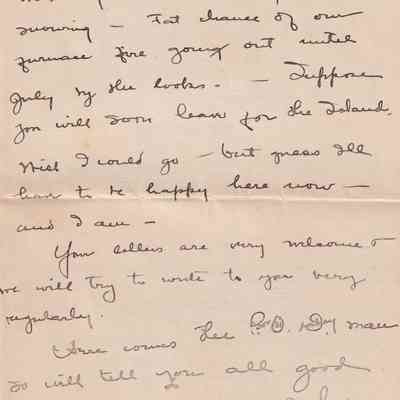 snowing — Fat chance of our
furnace fire going out until
July by the looks. — Suppose
you will soon leave for the Island.
Wish I could go — but guess I'll
have to be happy here now —
and I am —
Your letters are very welcome &
we will try to write to you very
regularly.
Here comes the man
so will tell you all good